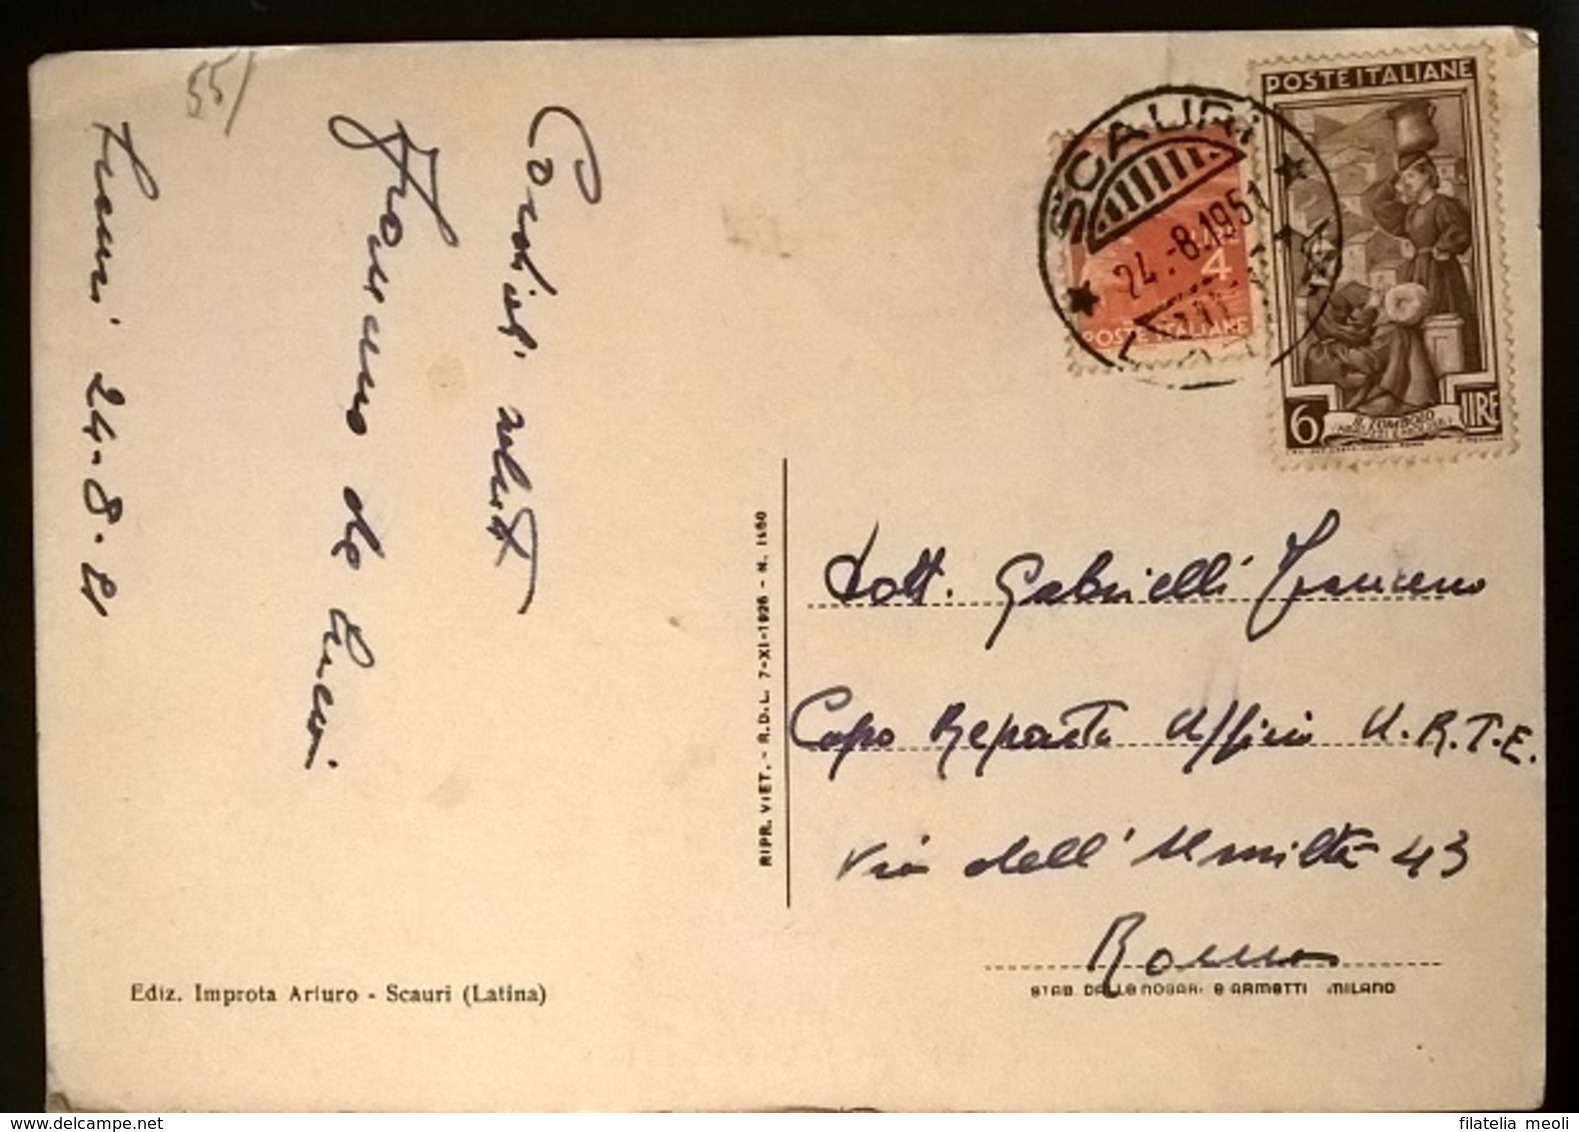 55/
Scauri 24-8-51
Francesco de Lucesi
Cordiali saluti
SCAURI
24.-8.1951
4
POSTE ITALIANE
POSTE ITALIANE
6 LIRE
IL TOMBOLO
RIPR. VIET. - R.D.L. 7-XI-1925 - N. 1450
Dott. Gabrielli Francesco
Capo Reparto Ufficio U.R.T.E.
Via dell'Umiltà 43
Roma
Ediz. Improta Arturo - Scauri (Latina)
STAB. DALLE NOGARE e ARMETTI MILANO
filatelia meoli